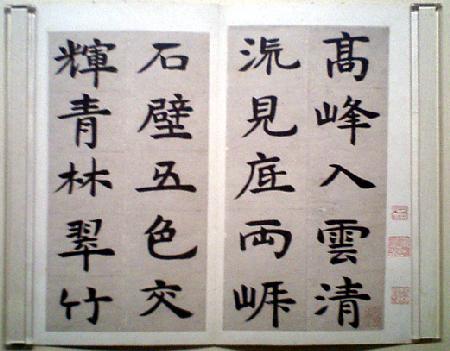 髙峰入雲清
流見底両岸
石壁五色交
輝青林翠竹